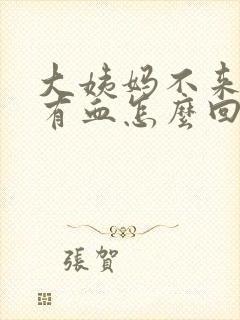 大姨妈不来
有血怎麼回
張賀